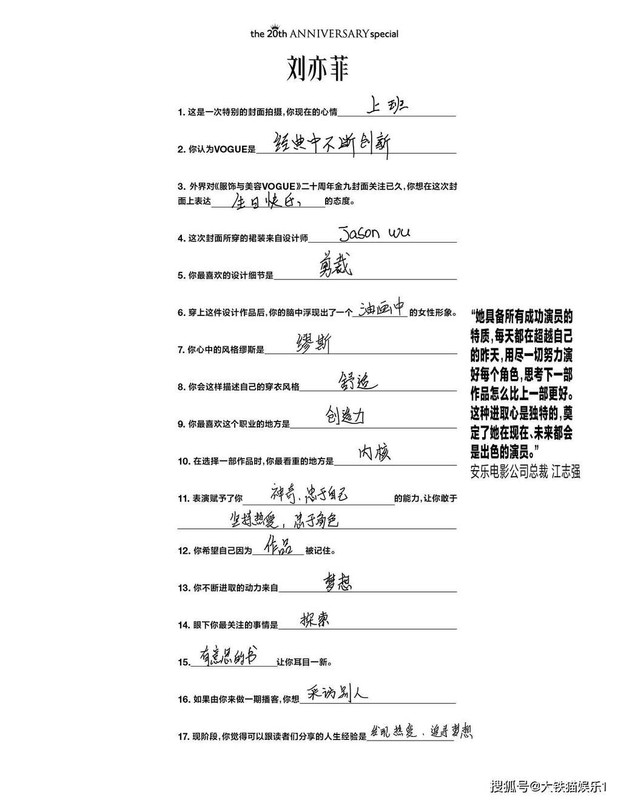 the 20th ANNIVERSARY special
刘亦菲
1. 这是一次特别的封面拍摄,你现在的心情 上班
2. 你认为VOGUE是 经典中不断创新
3. 外界对《服饰与美容VOGUE》二十周年金九封面关注已久,你想在这次封
面上表达 生日快乐, 的态度。
4. 这次封面所穿的裙装来自设计师 Jason Wu
5. 你最喜欢的设计细节是 剪裁
6. 穿上这件设计作品后,你的脑中浮现出了一个 油画中 的女性形象。
7. 你心中的风格缪斯是 缪斯
8. 你会这样描述自己的穿衣风格 舒适
9. 你最喜欢这个职业的地方是 创造力
10. 在选择一部作品时,你最看重的地方是 内核
11. 表演赋予了你 神奇、忠于自己 的能力,让你敢于
坚持热爱,忠于角色
12. 你希望自己因为 作品 被记住。
13. 你不断进取的动力来自 梦想
14. 眼下你最关注的事情是 探索
15. 有意思的书 让你耳目一新。
16. 如果由你来做一期播客,你想 采访别人
17. 现阶段,你觉得可以跟读者们分享的人生经验是 发现热爱、追寻梦想
“她具备所有成功演员的
特质,每天都在超越自己
的昨天,用尽一切努力演
好每个角色,思考下一部
作品怎么比上一部更好。
这种进取心是独特的,奠
定了她在现在、未来都会
是出色的演员。”
安乐电影公司总裁 江志强
搜狐号@大铁猫娱乐1